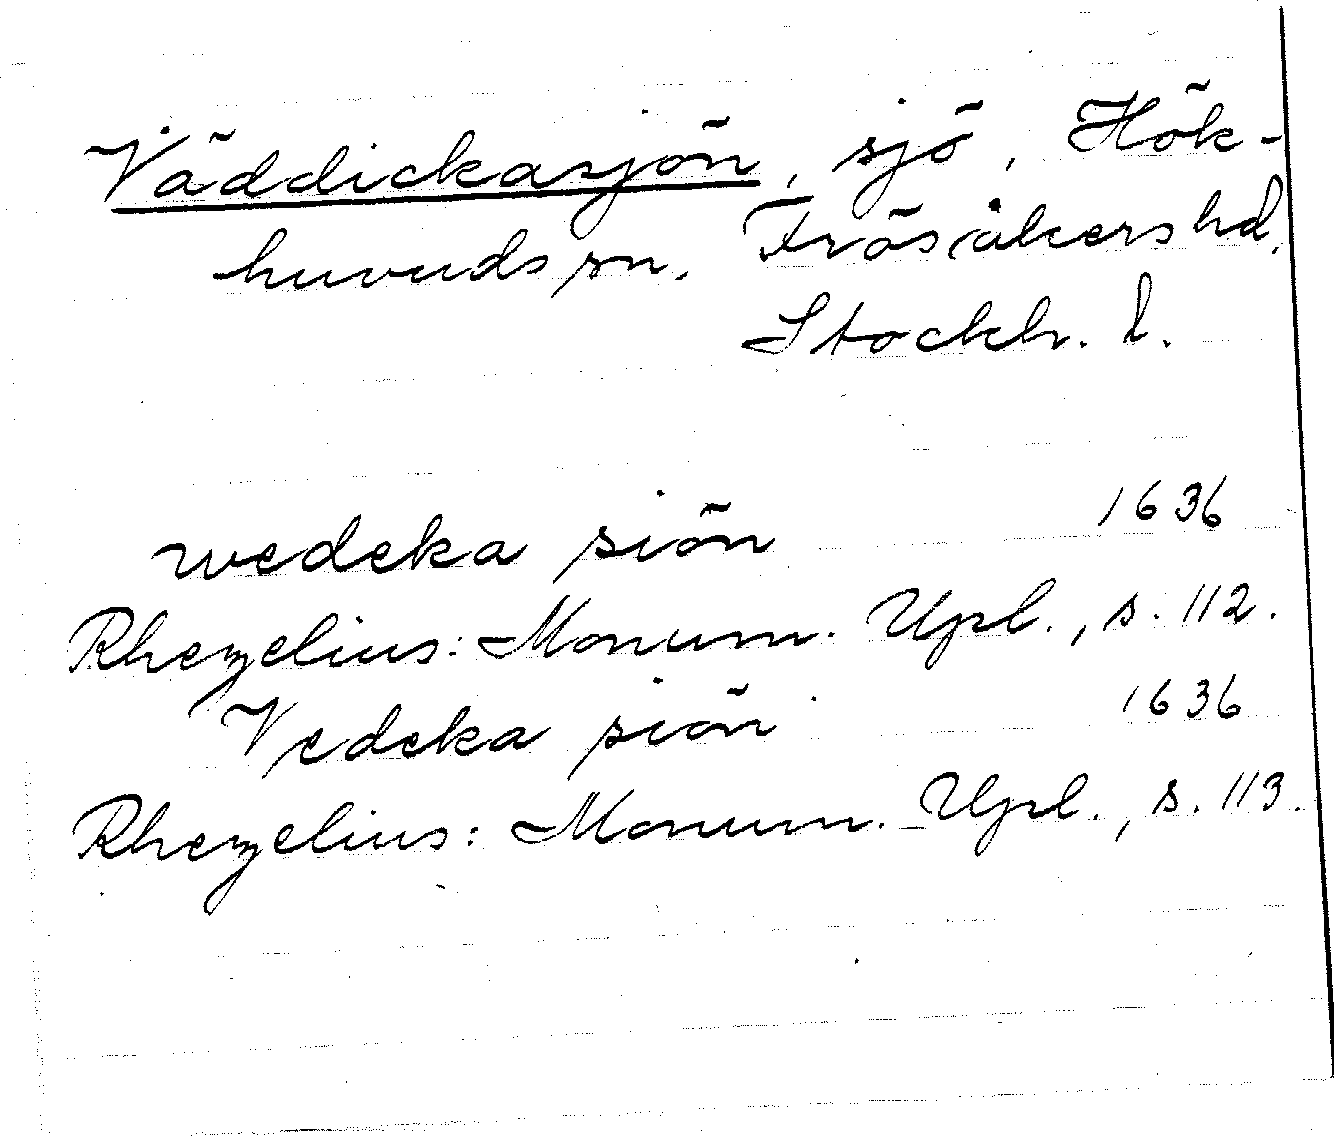 Väddickasjön, sjö, Hök-
huvuds sn, Frösåkers hd,
Stockh. l.
wedeka siön 1636
Rhezelius: Monum. Upl., s. 112.
Vedeka siön 1636
Rhezelius: Monum. Upl., s. 113.